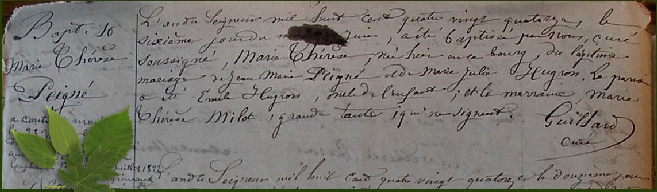 Bapt. 16
Marie Thérèse
Peigné
L'an du Seigneur mil huit cent quatre vingt quatorze, le
sixième jour du mois juin, a été baptisée par nous, curé
soussigné, Marie Thérèse, née hier en ce bourg, du légitime
mariage de Jean Marie Peigné et de Marie Julie Hugron. Le parrain
a été Emile Hugron, oncle de l'enfant; et la marraine, Marie
Thérèse Milot, grande tante, qui ne signent.
Guillard
curé
a contracté
L'an du Seigneur mil huit cent quatre vingt quatorze et le douzième jour